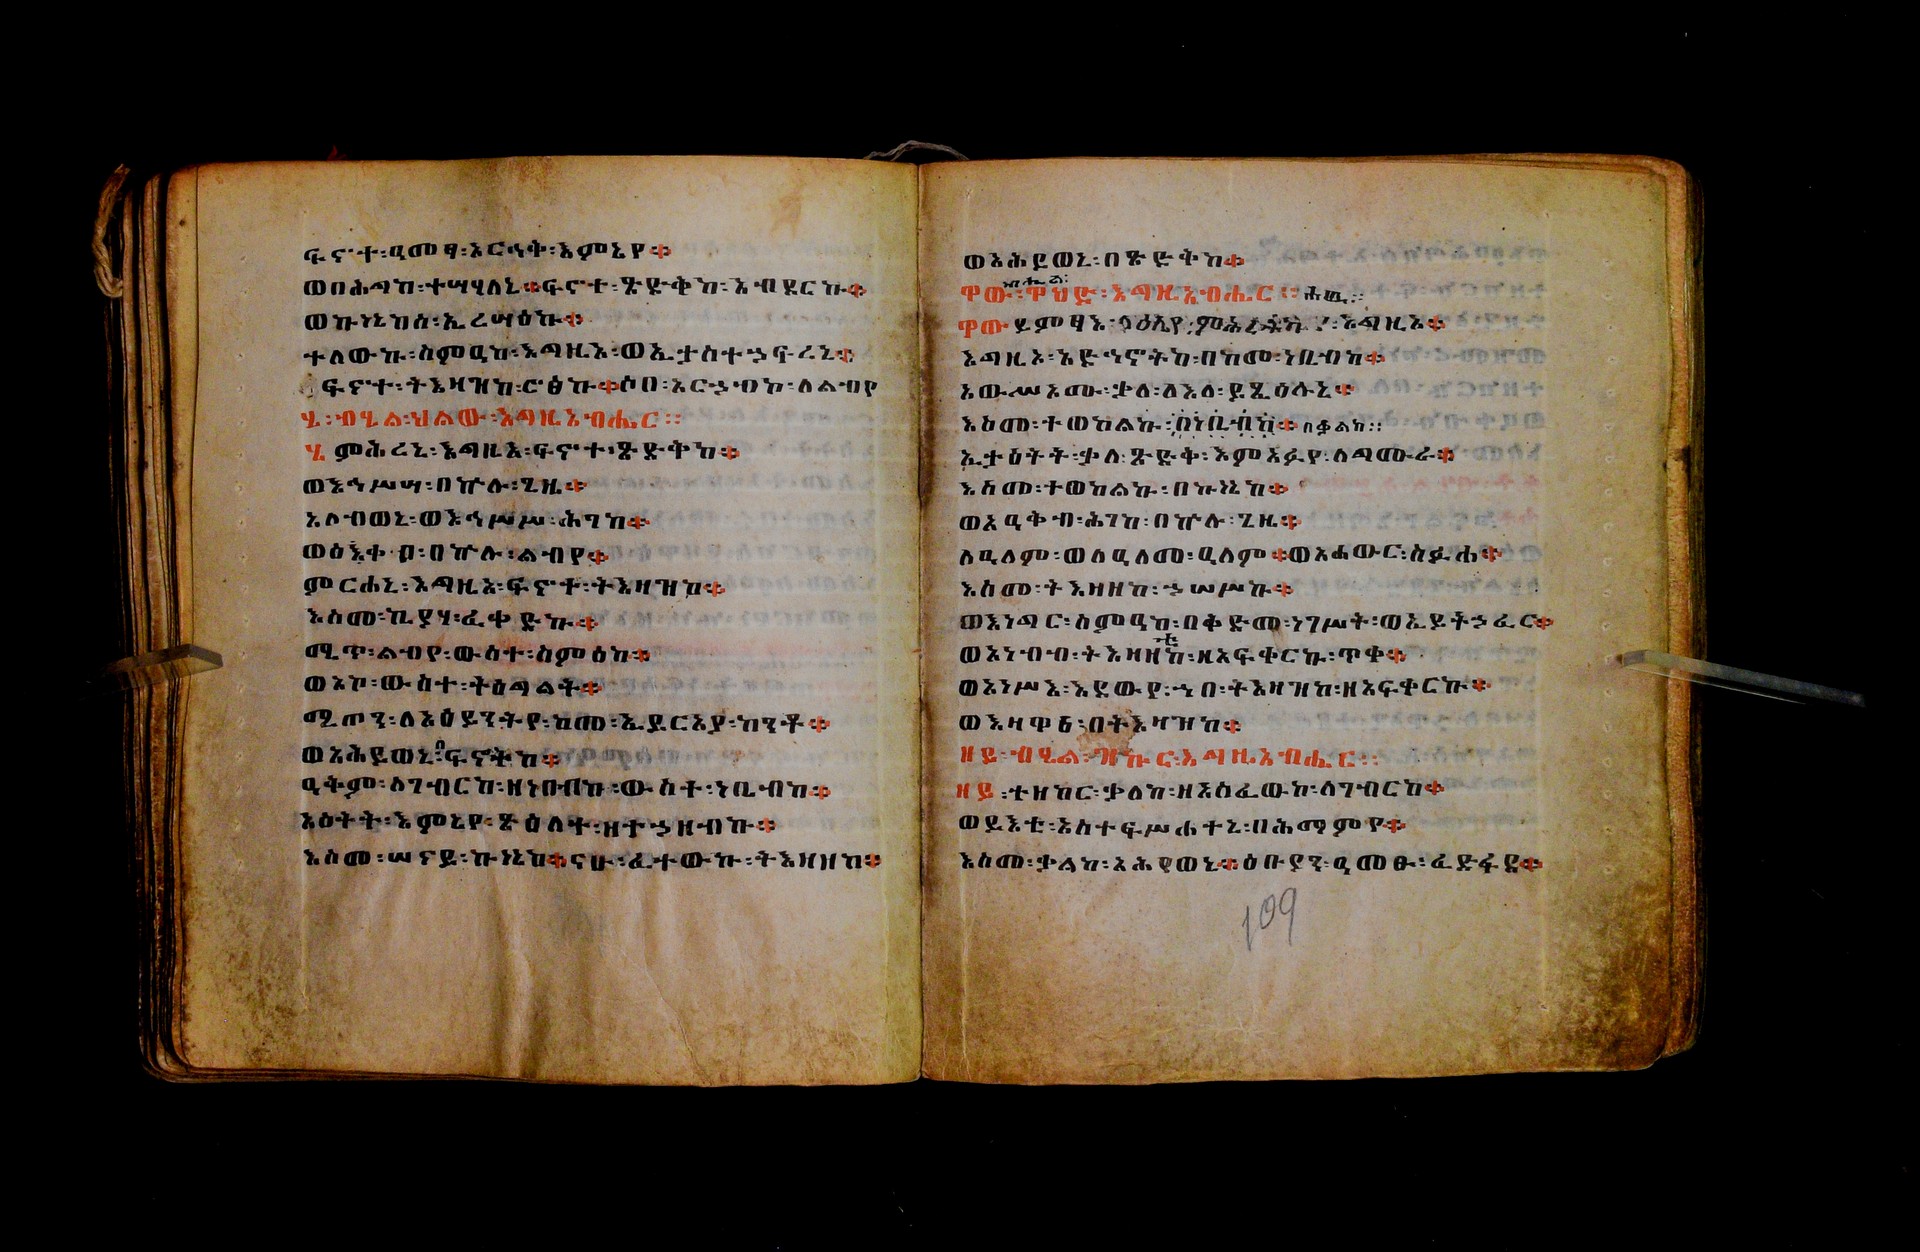 ፍኖተ፡ዐመፃ፡አርኀቅ፡እምኔየ።
ወበሕግከ፡ተሣሃለኒ።ፍኖተ፡ጽድቅከ፡አብደርኩ።
ወኵነኔከሰ፡ኢረሣዕኩ።
ተለውኩ፡ስምዐከ፡እግዚኦ፡ወኢታስተኃፍረኒ።
ፍኖተ፡ትእዛዝከ፡ሮፅኩ።ሶበ፡አርኃብኮ፡ለልብየ
ሄ፡ብሂል፡ህልው፡እግዚአብሔር፡፡
ሄ ምሕረኒ፡እግዚኦ፡ፍኖተ፡ጽድቅከ።
ወእኀሥሣ፡በኵሉ፡ጊዜ።
አለብወኒ፡ወእኀሥሥ፡ሕገከ።
ወዕእቀቦ፡በኵሉ፡ልብየ።
ምርሐኒ፡እግዚኦ፡ፍኖተ፡ትእዛዝከ።
እስመ፡ኪያሃ፡ፈቀድኩ።
ሚጥ፡ልብየ፡ውስተ፡ስምዕከ።
ወአኮ፡ውስተ፡ትዕግልት።
ሚጦን፡ለአዕይንትየ፡ከመ፡ኢይርአያ፡ከንቶ።
ወአሕይወኒ፡በፍኖትከ።
ዐቅም፡ለገብርከ፡ዘነበብከ፡ውስተ፡ነቢብከ።
አዕትት፡እምኔየ፡ጽዕለተ፡ዘተኃዘብኩ።
እስመ፡ሠናይ፡ኵነኔከ።ናሁ፡ፈተውኩ፡ትእዛዘከ።
ወአሕይወኒ፡በጽድቅከ።
ዋው፡ዋህድ፡እግዚአብሔር፡፡
ዋው ይምፃእ፡እግዚኦ።
እግዚኦ፡አድኅኖትከ፡በከመ፡ነቢብከ።
አውሥኦሙ፡ቃለ፡ለእለ፡ይጼዕሉኒ።
እስመ፡ተወከልኩ፡በነቢብከ።በቃልከ፡፡
ኢታዕትት፡ቃለ፡ጽድቅ፡እምአፉየ፡ለግሙራ።
እስመ፡ተወከልኩ፡በኵነኔከ።
ወአዐቅብ፡ሕገከ፡በኵሉ፡ጊዜ።
ለዓለም፡ወለዓለመ፡ዓለም።ወአሐውር፡ስፉሐ።
እስመ፡ትእዛዘከ፡ኃሠሥኩ።
ወእነግር፡ስምዐከ፡በቅድመ፡ነገሥት፡ወኢይትኃፈር።
ወአነብብ፡ትእዛዘከ፡ዘአፍቀርኩ፡ጥቀ።
ወአነሥእ፡እደውየ፡ኀበ፡ትእዛዝከ፡ዘአፍቀርኩ።
ወእዛዋዕ፡በትእዛዝከ።
ዘይ፡ብሂል፡ዝኩር፡እግዚአብሔር፡፡
ዘይ፡ተዘከር፡ቃለከ፡ዘአሰፈውከ፡ለገብርከ።
ወይእቲ፡አስተፍሥሐተኒ፡በሕማምየ።
እስመ፡ቃልከ፡አሕየወኒ።ዕቡያን፡ዐመፁ፡ፈድፋደ።
109